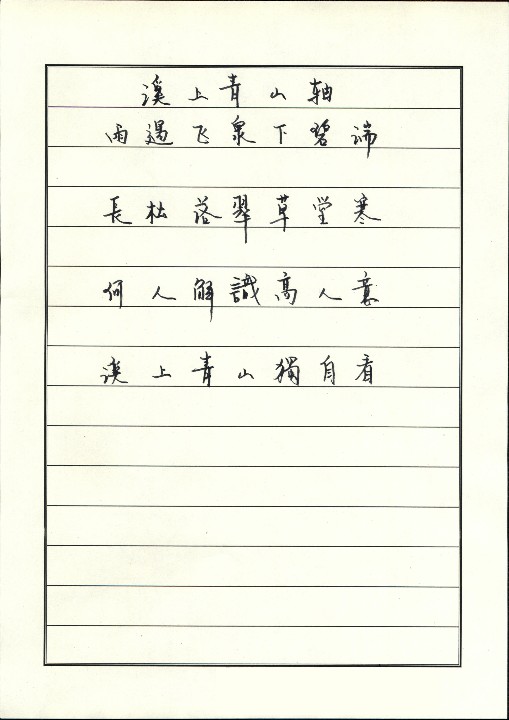 溪上青山轴
雨過飞泉下碧端
長松落翠草堂寒
何人解識高人意
溪上青山獨自看